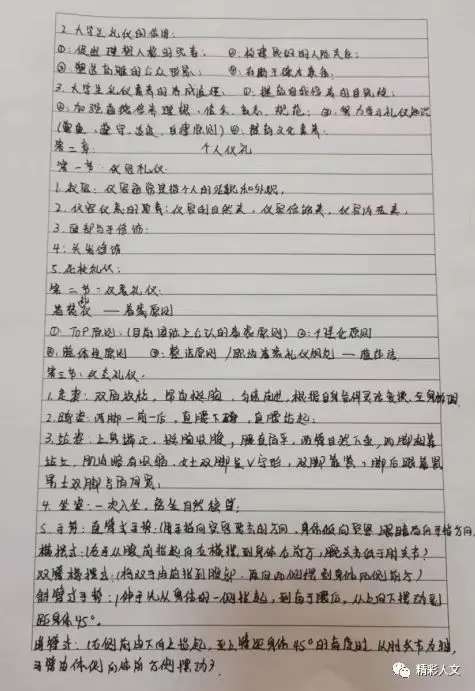 2. 大学生礼仪的作用:
①: 促进理想人格的完善; ②: 构建良好的人际关系;
③: 塑造高雅的公众形象; ④: 有助于
3. 大学生礼仪素养的养成途径: ①: 提高自我修养的自觉性;
②: 加强道德修养理想、信念、, 规范; ③: 努力学习礼仪知识
(尊重、遵守、适度、自律原则) ④: 提高文化素养.
第二章: 个人仪礼
第一节: 仪容礼仪.
1. : 仪容通常是指个人的外貌和外观,
2. 仪容仪表的要素: 仪容的自然美, 仪容修饰美, 仪容内在美,
3. 面部与手修饰:
4: 头发修饰
5. 礼仪:
第二节: 仪表礼仪.
着装 — 着装原则
①: TOP原则: (目前国际上公认的着装原则) ②: 个性化原则
③: 整体性原则 ④: 整洁原则 / 职场着装礼仪规范 —
第三节: 仪态礼仪.
1. 走姿: 双目, 挺胸, 匀速前进, 根据自身条件灵活变换, 全身协调,
2. 蹲姿: 两脚一前一后, 直腰下蹲, 直腰站起;
3. 站姿: 上身端正, 挺胸收腹, 腰直肩平, 两臂自然下垂, 两脚相靠
站立, 肌肉略有收缩, 女士双脚呈V字形, 双脚靠紧, 脚后跟靠紧
男士双脚与肩同宽;
4. 坐姿: 一次入坐, 自然
5. 手势: 直臂式手势: (用手指向宾客要去的方向, 身体侧向宾客, 眼睛看向手指方向)
横摆式: (右手从腹前抬起向右横摆到身体右前方, 腕关节低于肘关节)
双臂横摆式: (将双手由前抬到腹部, 再向两侧摆到身体两侧前方)
斜臂式手势: (伸手先从身体的一侧抬起, 到高于腰后, 从上向下摆动到
距身体45°.
曲臂式: (右侧前由下向上抬起, 至上臂距身体45°的高度时, 以肘关节为轴,
手臂由体侧向体前方侧摆动)
精彩人文